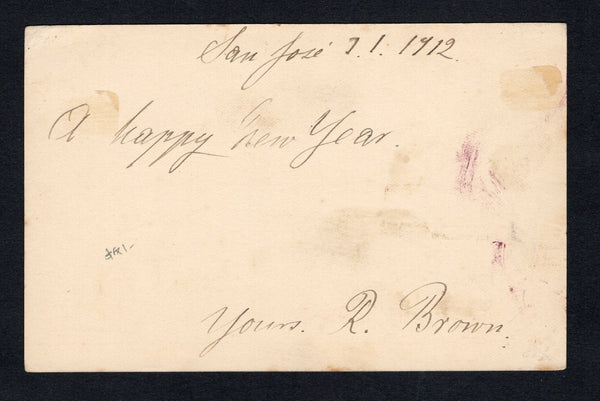 San José 7.1. 1912.
A happy New Year.
Yours. R. Brown.